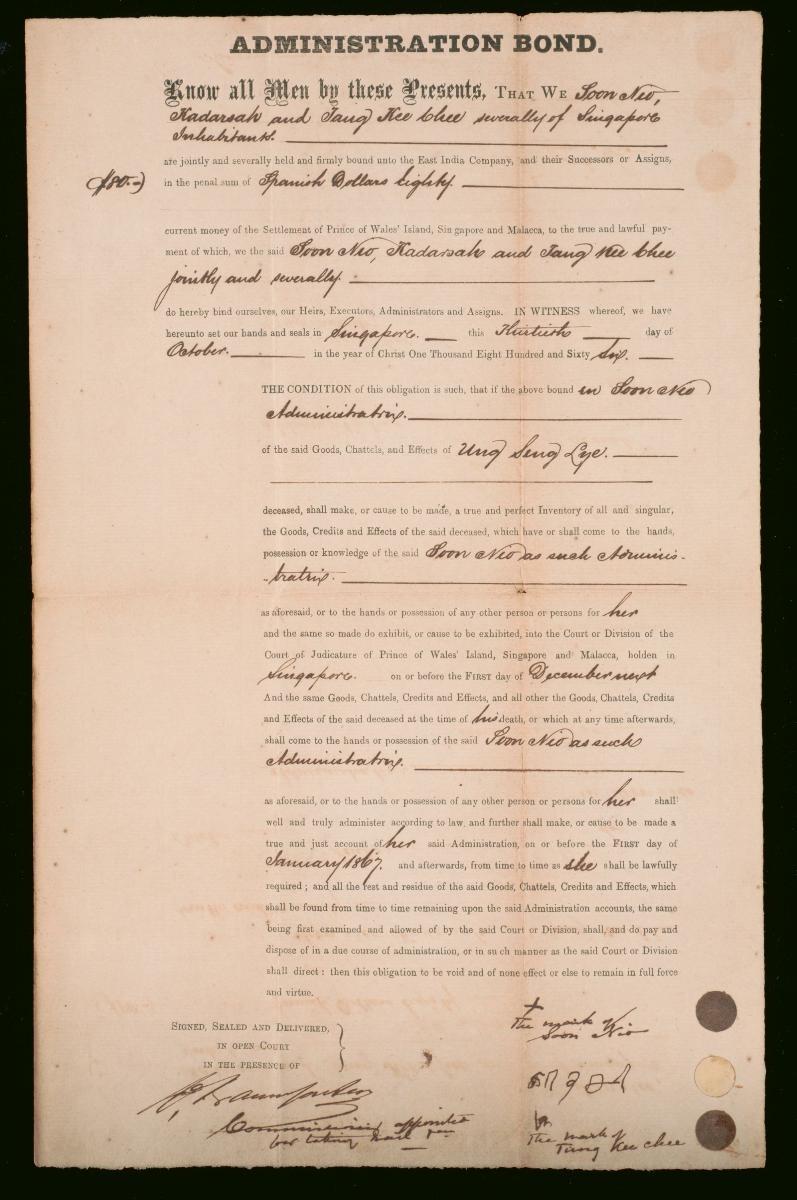 ADMINISTRATION BOND.
Know all Men by these Presents, THAT WE Soon Neo,
Kadarsah and Tang Kee Chee severally of Singapore
Inhabitants.
are jointly and severally held and firmly bound unto the East India Company, and their Successors or Assigns,
($80.-) in the penal sum of Spanish Dollars Eighty.
current money of the Settlement of Prince of Wales' Island, Singapore and Malacca, to the true and lawful pay-
ment of which, we the said Soon Neo, Kadarsah and Tang Kee Chee
jointly and severally.
do hereby bind ourselves, our Heirs, Executors, Administrators and Assigns. IN WITNESS whereof, we have
hereunto set our hands and seals in Singapore. this Thirtieth day of
October. in the year of Christ One Thousand Eight Hundred and Sixty Six.
THE CONDITION of this obligation is such, that if the above bound en Soon Neo
Administratrix.
of the said Goods, Chattels, and Effects of Ung Seng Lye.
deceased, shall make, or cause to be made, a true and perfect Inventory of all and singular,
the Goods, Credits and Effects of the said deceased, which have or shall come to the hands,
possession or knowledge of the said Soon Neo as such Adminis-
-tratrix.
as aforesaid, or to the hands or possession of any other person or persons for her
and the same so made do exhibit, or cause to be exhibited, into the Court or Division of the
Court of Judicature of Prince of Wales' Island, Singapore and Malacca, holden in
Singapore. on or before the FIRST day of December next
And the same Goods, Chattels, Credits and Effects, and all other the Goods, Chattels, Credits
and Effects of the said deceased at the time of his death, or which at any time afterwards,
shall come to the hands or possession of the said Soon Neo as such
Administratrix.
as aforesaid, or to the hands or possession of any other person or persons for her shall
well and truly administer according to law, and further shall make, or cause to be made a
true and just account of her said Administration, on or before the FIRST day of
January 1867. and afterwards, from time to time as she shall be lawfully
required; and all the rest and residue of the said Goods, Chattels, Credits and Effects, which
shall be found from time to time remaining upon the said Administration accounts, the same
being first examined and allowed of by the said Court or Division, shall, and do pay and
dispose of in a due course of administration, or in such manner as the said Court or Division
shall direct: then this obligation to be void and of none effect or else to remain in full force
and virtue.
SIGNED, SEALED AND DELIVERED,
IN OPEN COURT
IN THE PRESENCE OF
Commissioner appointed
for taking bail
The mark of
Soon Neo
The mark of
Tang Kee Chee